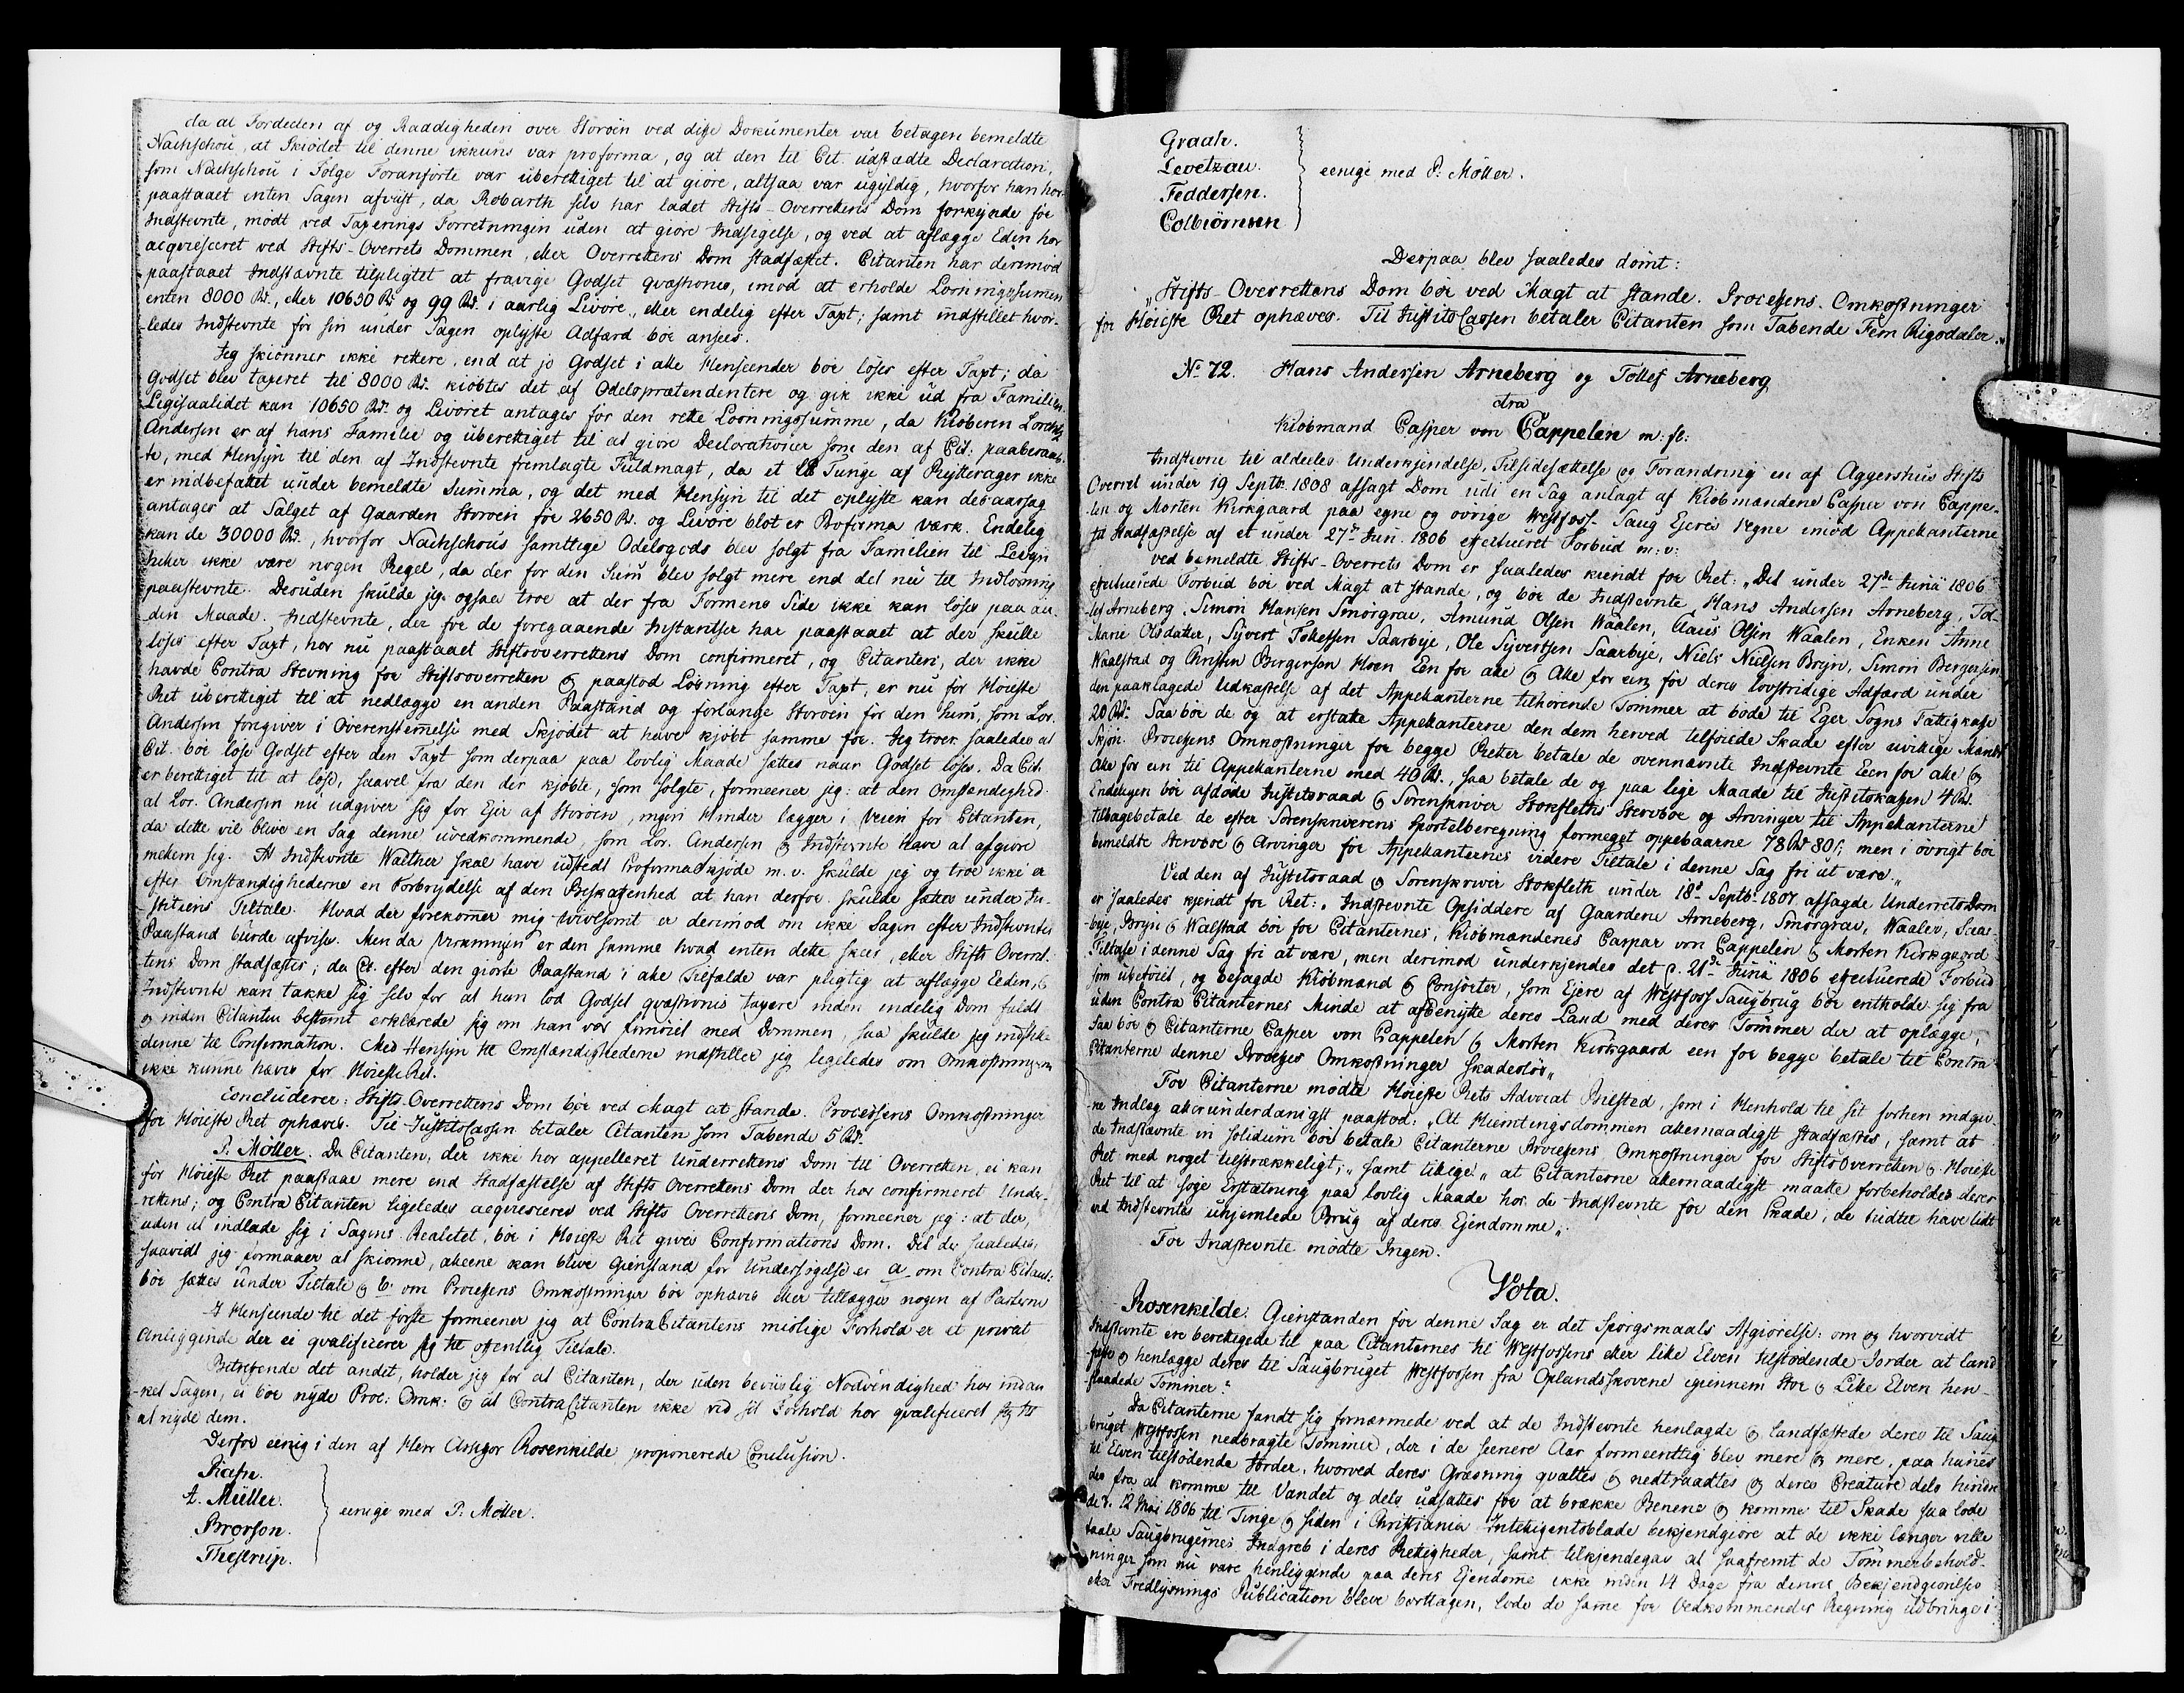 da al Fordelen af og Raadigheden over Storöen ved disse Dokumenter var betagen bemeldte
Nachschou, at Skiödet til denne ikkuns var proforma, og at den til Cit. udstædte Declaration,
som Nachschou i Følge Foranførte var uberettiget til at giöre, altsaa var ugyldig, hvorfor han har
paastaaet enten Sagen afviist, da Robarth selv har ladet Stifts-Overrettens Dom forkynde for
Indstevnte, mödt ved Taxerings Forretningen uden at giöre Indsigelse, og ved at aflægge Eden har
acqviesceret ved Stifts-Overrets Dommen, eller Overrettens Dom stadfæstet. Citanten har derimod
paastaaet Indstævnte tilpligtet at fravige Godset qvæstionis, imod at erholde Losningssummen
enten 8000 Rd., eller 10650 Rd. og 99 Rd. i aarlig Livöre, eller endelig efter Taxt; samt indstillet hvor-
ledes Indstevnte for sin under Sagen oplyste Adfærd bör ansees.
Jeg skiönner ikke rettere, end at jo Godset i alle Henseender bör löses efter Taxt; da
Godset blev taxeret til 8000 Rd. kiöbtes det af Odelsprætendentere og gik ikke ud fra Familien.
Ligesaalidet kan 10650 Rd. og Livöret antages for den rette Losningssumme, da Kiöberen Lorentz
Andersen er af hans Familie og uberettiget til at giöre Declarationer som den af Cit: paaberaab-
te, med Hensyn til den af Indstevnte fremlagte Fuldmagt, da et 18 Tunge af Rytterager ikke
er indbefattet under bemeldte Summa, og det med Hensyn til det oplyste kan desaarsag
antages at Salget af Gaarden Storöen for 2650 Rd. og Livöre blot er Proforma Værk. Endelig
kan de 30000 Rd., hvorfor Nachschous samtlige Odelsgods blev solgt fra Familien til Levyn
heller ikke være nogen Regel, da der for den Sum blev solgt mere end det nu til Indlosning
paastevnte. Desuden skulde jeg ogsaa troe at der fra Formens Side ikke kan löses paa an-
den Maade. Indstevnte, der for de foregaaende Instantser har paastaaet at der skulle
löses efter Taxt, har nu paastaaet Stiftsoverrettens Dom confirmeret, og Citanten, der ikke
havde Contra Stevning for Stiftsoverretten og paastod Lösning efter Taxt, er nu for Höieste
Ret uberettiget til at nedlægge en anden Paastand og forlange Storöen for den Sum, som Lor.
Andersen foregiver i Overensstemmelse med Skjödet at have kjöbt samme for. Jeg troer saaledes at
Cit. bör löse Godset efter den Taxt som derpaa paa lovlig Maade sættes naar Godset löses. Da Cit.
er berettiget til at löse, saavel fra den der kjöbte, som solgte, formeener jeg: at den Omstændighed
at Lor. Andersen nu udgiver sig for Ejer af Storöen, ingen Hinder lægger i Veien for Citanten,
da dette vil blive en Sag denne uvedkommende, som Lor. Andersen og Indstevnte have at afgiöre
mellem sig. At Indstevnte Walther skal have udstedt Proforma Skjöde m. v. skulde jeg og troe ikke er
efter Omstændighederne en Forbrydelse af den Beskaffenhed at han derfor skulde sættes under Ju-
stitsens Tiltale. Hvad der forekommer mig tvivlsomt er derimod om ikke Sagen efter Indstevntes
Paastand burde afvises. Men da Virkningen er den samme hvad enten dette skeer, eller Stifts Overret-
tens Dom stadfæstes; da Cit. efter den giorte Paastand i alle Tilfælde var pligtig at aflægge Eeden, &
Indstevnte kan takke sig selv for at han lod Godset qvæstionis taxere inden endelig Dom faldt
og inden Citanten bestemt erklærede sig om han var fornöiet med Dommen saa skulde jeg indstille
denne til Confirmation. Med Hensyn til Omstændighederne indstiller jeg ligeledes om Omkostningerne
ikke kunne hæves for Höieste Ret.
Concluderer: Stifts-Overrettens Dom bör ved Magt at stande. Processens Omkostninger
for Höieste Ret ophæves. Til Justitscassen betaler Citanten som Tabende 5 Rd.
P. Möller. Da Citanten, der ikke har appelleret Underrettens Dom til Overretten, ei kan
for Höieste Ret paastaae mere end Stadfæstelse af Stifts Overrettens Dom der har confirmeret Under-
rettens; og Contra Citanten ligeledes acqviescerer ved Stifts Overrettens Dom, formeener jeg: at der,
uden at indlade sig i Sagens Realitet, bör i Höieste Ret gives Confirmations Dom. Det der saaledes,
saavidt jeg formaaer at skiönne, alleene kan blive Gienstand for Undersögelse er a om Contra Citant:
bör sættes under Tiltale og b. om Processens Omkostninger bör ophæves eller tillægges nogen af Parterne
I Henseende til det förste formeener jeg at Contra Citantens mislige Forhold er et privat
Anliggende der ei qvalificerer sig til offentlig Tiltale.
Betreffende det andet, holder jeg for at Citanten, der uden beviislig Nödvendighed har indan-
ket Sagen, ei bör nyde Proc: Omk: og at Contra Citanten ikke ved sit Forhold har qvalificeret sig til
at nyde dem.
Derfor eenig i den af Herr Assessor Rosenkilde proponerede Conclusion.
Rafn.
A. Müller.
Brorson.
Thestrup.
eenige med P. Möller.
Graah.
Levetzau.
Feddersen.
Colbiörnsen
eenige med P. Möller.
Derpaa blev saaledes dömt:
„Stifts-Overrettens Dom bör ved Magt at stande. Processens Omkostninger
for Höieste Ret ophæves. Til JustitsCassen betaler Citanten som Tabende Fem Rigsdaler.“
No 72. Hans Andersen Arneberg og Tollef Arneberg
ctra
Kiöbmand Casper von Cappelen m: fl:
Indstevne til aldeles Underkjendelse, Tilsidesættelse og Forandring en af Aggershuus Stifts
Overret under 19 Septb. 1808 afsagt Dom udi en Sag anlagt af Kiöbmændene Casper von Cappe-
len og Morten Kirkgaard paa egne og övrige Westfoss-Saug Ejeres Vegne imod Appellanterne
til Stadfæstelse af et under 27de Juni 1806 effectueret Forbud m: v:
Ved bemeldte Stifts-Overrets Dom er saaledes kiendt for Ret: „Det under 27de Junii 1806
effectuerede Forbud bör ved Magt at stande, og bör de Indstevnte, Hans Andersen Arneberg, Tol-
lef Arneberg, Simon Hansen Smörgrav, Amund Olsen Waalen, Claus Olsen Waalen, Enken Anne
Marie Olsdatter, Syvert Tollefsen Saarbye, Ole Syvertsen Saarbye, Niels Nielsen Bryn, Simon Bergersen
Waalstad og Christen Borgersen Moen Een for alle og Alle for een for deres lovstridige Adfærd under
den paaklagede Udkastelse af det Appellanterne tilhörende Tommer at böde til Eger Sogns Fattigkasse
20 Rd. Saa bör de og at erstatte Appellanterne den dem herved tilföiede Skade efter uvillige Mænds
Skjön. Processens Omkostninger for begge Retter betale de ovennævnte Indstevnte Een for alle og
Alle for een til Appellanterne med 40 Rd., saa betale de og paa lige Maade til Justitskassen 4 Rd.
Endeligen bör afdöde Justitsraad og Sorenskriver Stockfleths Stervboe og Arvinger til Appellanterne
tilbagebetale de efter Sorenskriverens Sportelberegning formeget oppebaarne 78 Rd 80 s; men i övrigt bör
bemeldte Stervboe og Arvinger for Appellanternes videre Tiltale i denne Sag fri at være.“
Ved den af Justitsraad og Sorenskriver Stockfleth under 18de Septb. 1807 afsagde Underrets Dom
er saaledes kjendt for Ret: „Indstevnte Opsiddere af Gaardene Arneberg, Smörgrav, Waalen, Saar-
bye, Bryn og Walstad bör for Citanternes, Kiöbmændenes Caspar von Cappelen og Morten Kirkgaard
Tiltale i denne Sag fri at være, men derimod underkjendes det d. 27de Junii 1806 effectuerede Forbud
som ubeföiet, og besagde Kiöbmænd og Consorter, som Ejere af Westfoss Saugbrug bör entholde sig fra
uden Contra Citanternes Minde at afbenytte deres Land med deres Tömmer der at oplægge,
saa bör og Citanterne Casper von Cappelen og Morten Kirkgaard een for begge betale til Contra
Citanterne denne Processes Omkostninger skadeslös.“
For Citanterne mödte Höieste Rets Advocat Bilsted, som i Henhold til sit forhen indgiv-
ne Indlæg allerunderdanigst paastod: „At Hiemtingsdommen allernaadigst stadfæstes, samt at
de Indstævnte in solidum bör betale Citanterne Processens Omkostninger for Stifts Overretten og Höieste
Ret med noget tilstrækkeligt;“ samt tillige „at Citanterne allernaadigst maatte forbeholdes deres
Ret til at söge Erstatning paa lovlig Maade hos de Indstevnte for den Skade, de hidtil have lidt
ved Indstevntes uhjemlede Brug af deres Ejendomme.“
For Indstevnte mödte Ingen.
Vota.
Rosenkilde. Gienstanden for denne Sag er det Spörgsmaals Afgiörelse: om og hvorvidt
Indstevnte ere berettigede til paa Citanternes til Westfossens eller lille Elven tilstödende Jorder at land-
fæste og henlægge deres til Saugbruget Westfossen fra Oplandsskovene igiennem Stor og Lille Elven hen-
flaadede Tömmer?
Da Citanterne fandt sig fornærmede ved at de Indstevnte henlagde og landfæstede deres til Saug-
bruget Westfossen nedbragte Tömmer, der i de seenere Aar formeentlig blev mere og mere, paa hines
til Elven tilstödende Jorder, hvorved deres Græsning qvaltes og nedtraadtes og deres Creature dels hindre-
des fra at komme til Vandet og dels udsattes for at brække Benene og komme til Skade saa lode
de d. 12 Mai 1806 til Tinge og siden i Christiania Intelligentsblade bekjendgiöre at de ikke længer ville
taale Saugbrugernes Indgreb i deres Rettigheder, samt tilkjendegav at saafremt de Tömmerbehold-
ninger som nu vare henliggende paa deres Ejendomme ikke inden 14 Dage fra denne Bekjendgiörelses
eller Fredlysnings Publication bleve borttagen, lode de samme for Vedkommendes Regning udbringe i